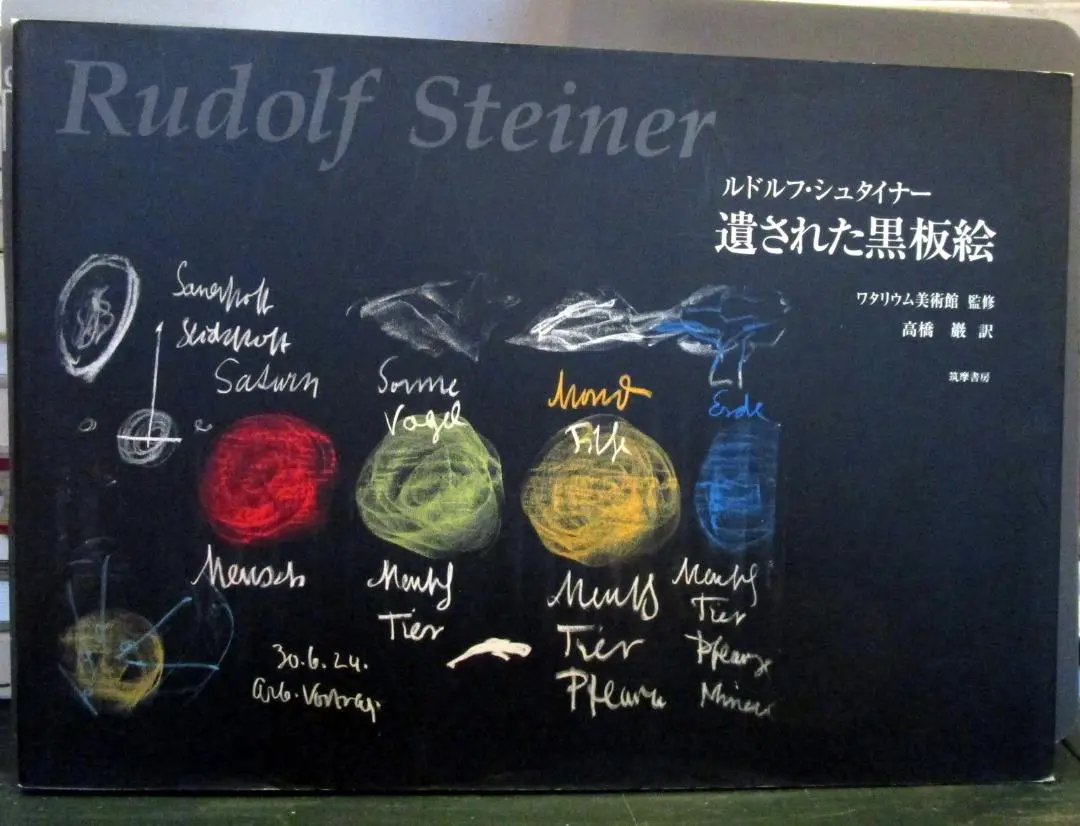 Rudolf Steiner
ルドルフ・シュタイナー
遺された黒板絵
ワタリウム美術館 監修
高橋 巖 訳
筑摩書房
Saturn
Sonne
Vogel
Mond
Erde
Mensch
Tier
Tier
Pflanz
Tier
30.6.24.
Arb. Vortrag.